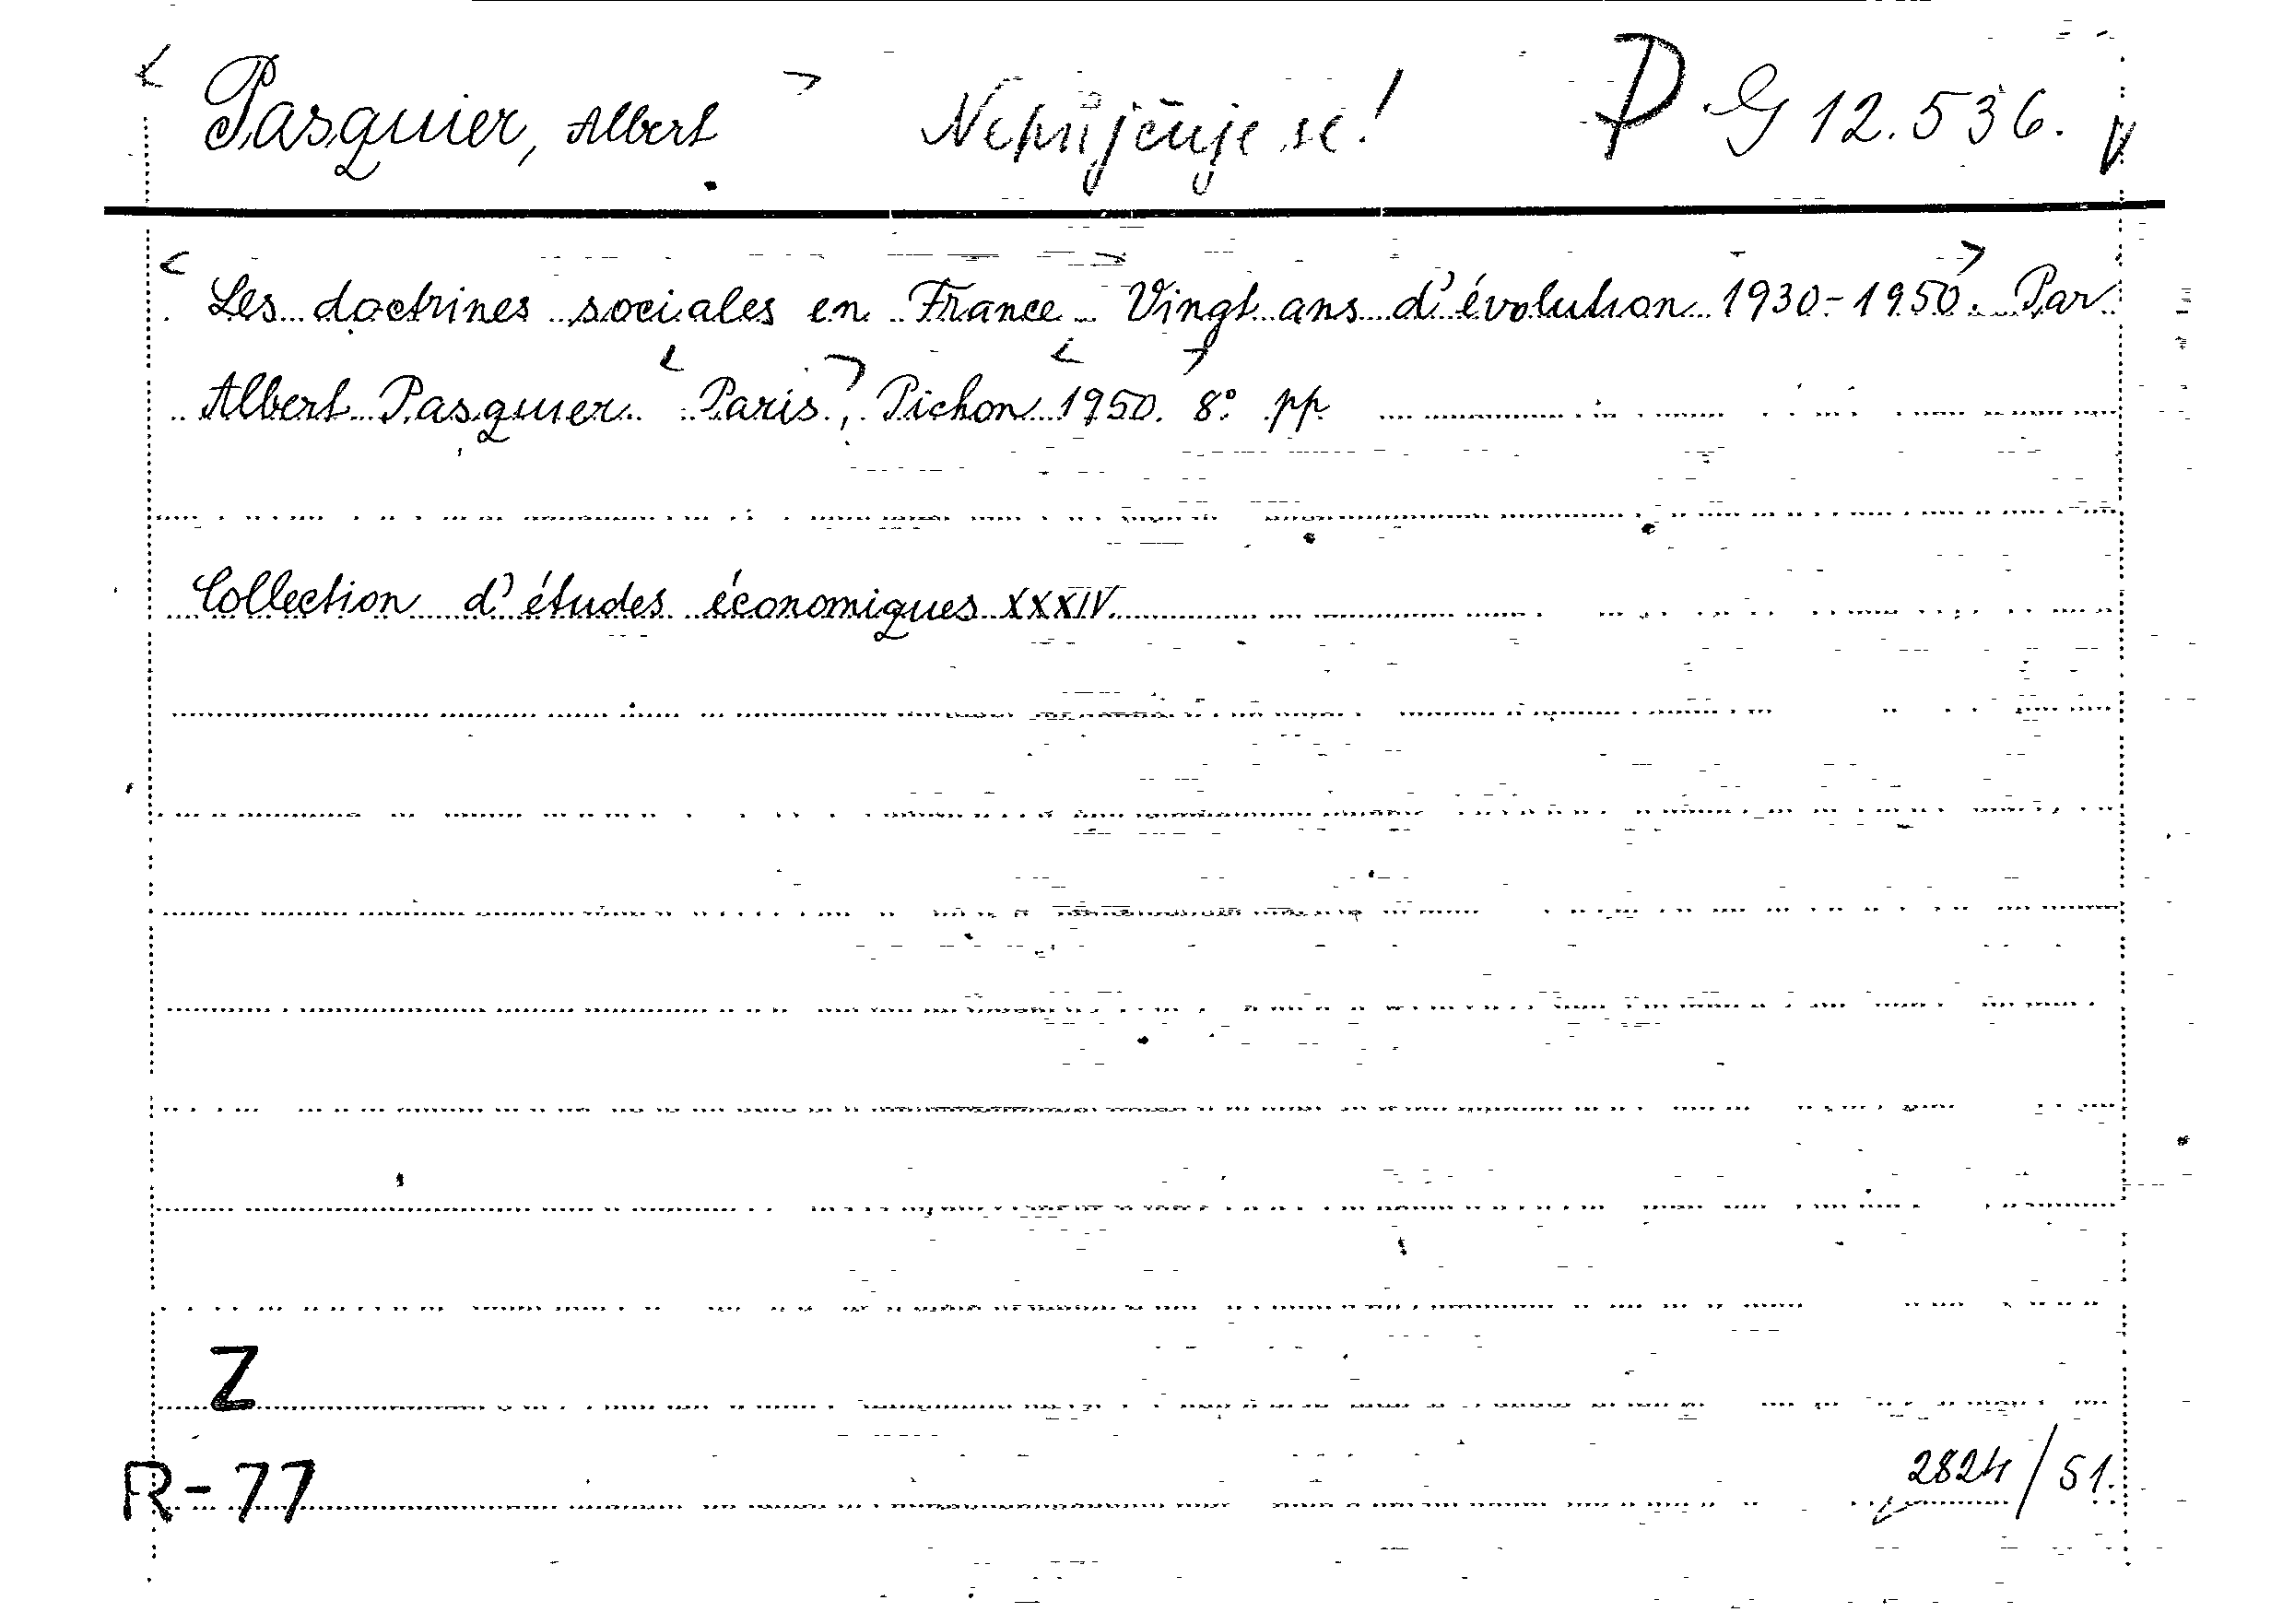 < Pasquier, Albert > Nepůjčuje se! P G 12.536. V
< Les doctrines sociales en France - Vingt ans d'évolution 1930-1950 >. Par
Albert Pasquier < Paris >, Pichon < 1950. > 8° pp.
Collection d'études économiques XXXIV.
Z
R-77
2824/51.